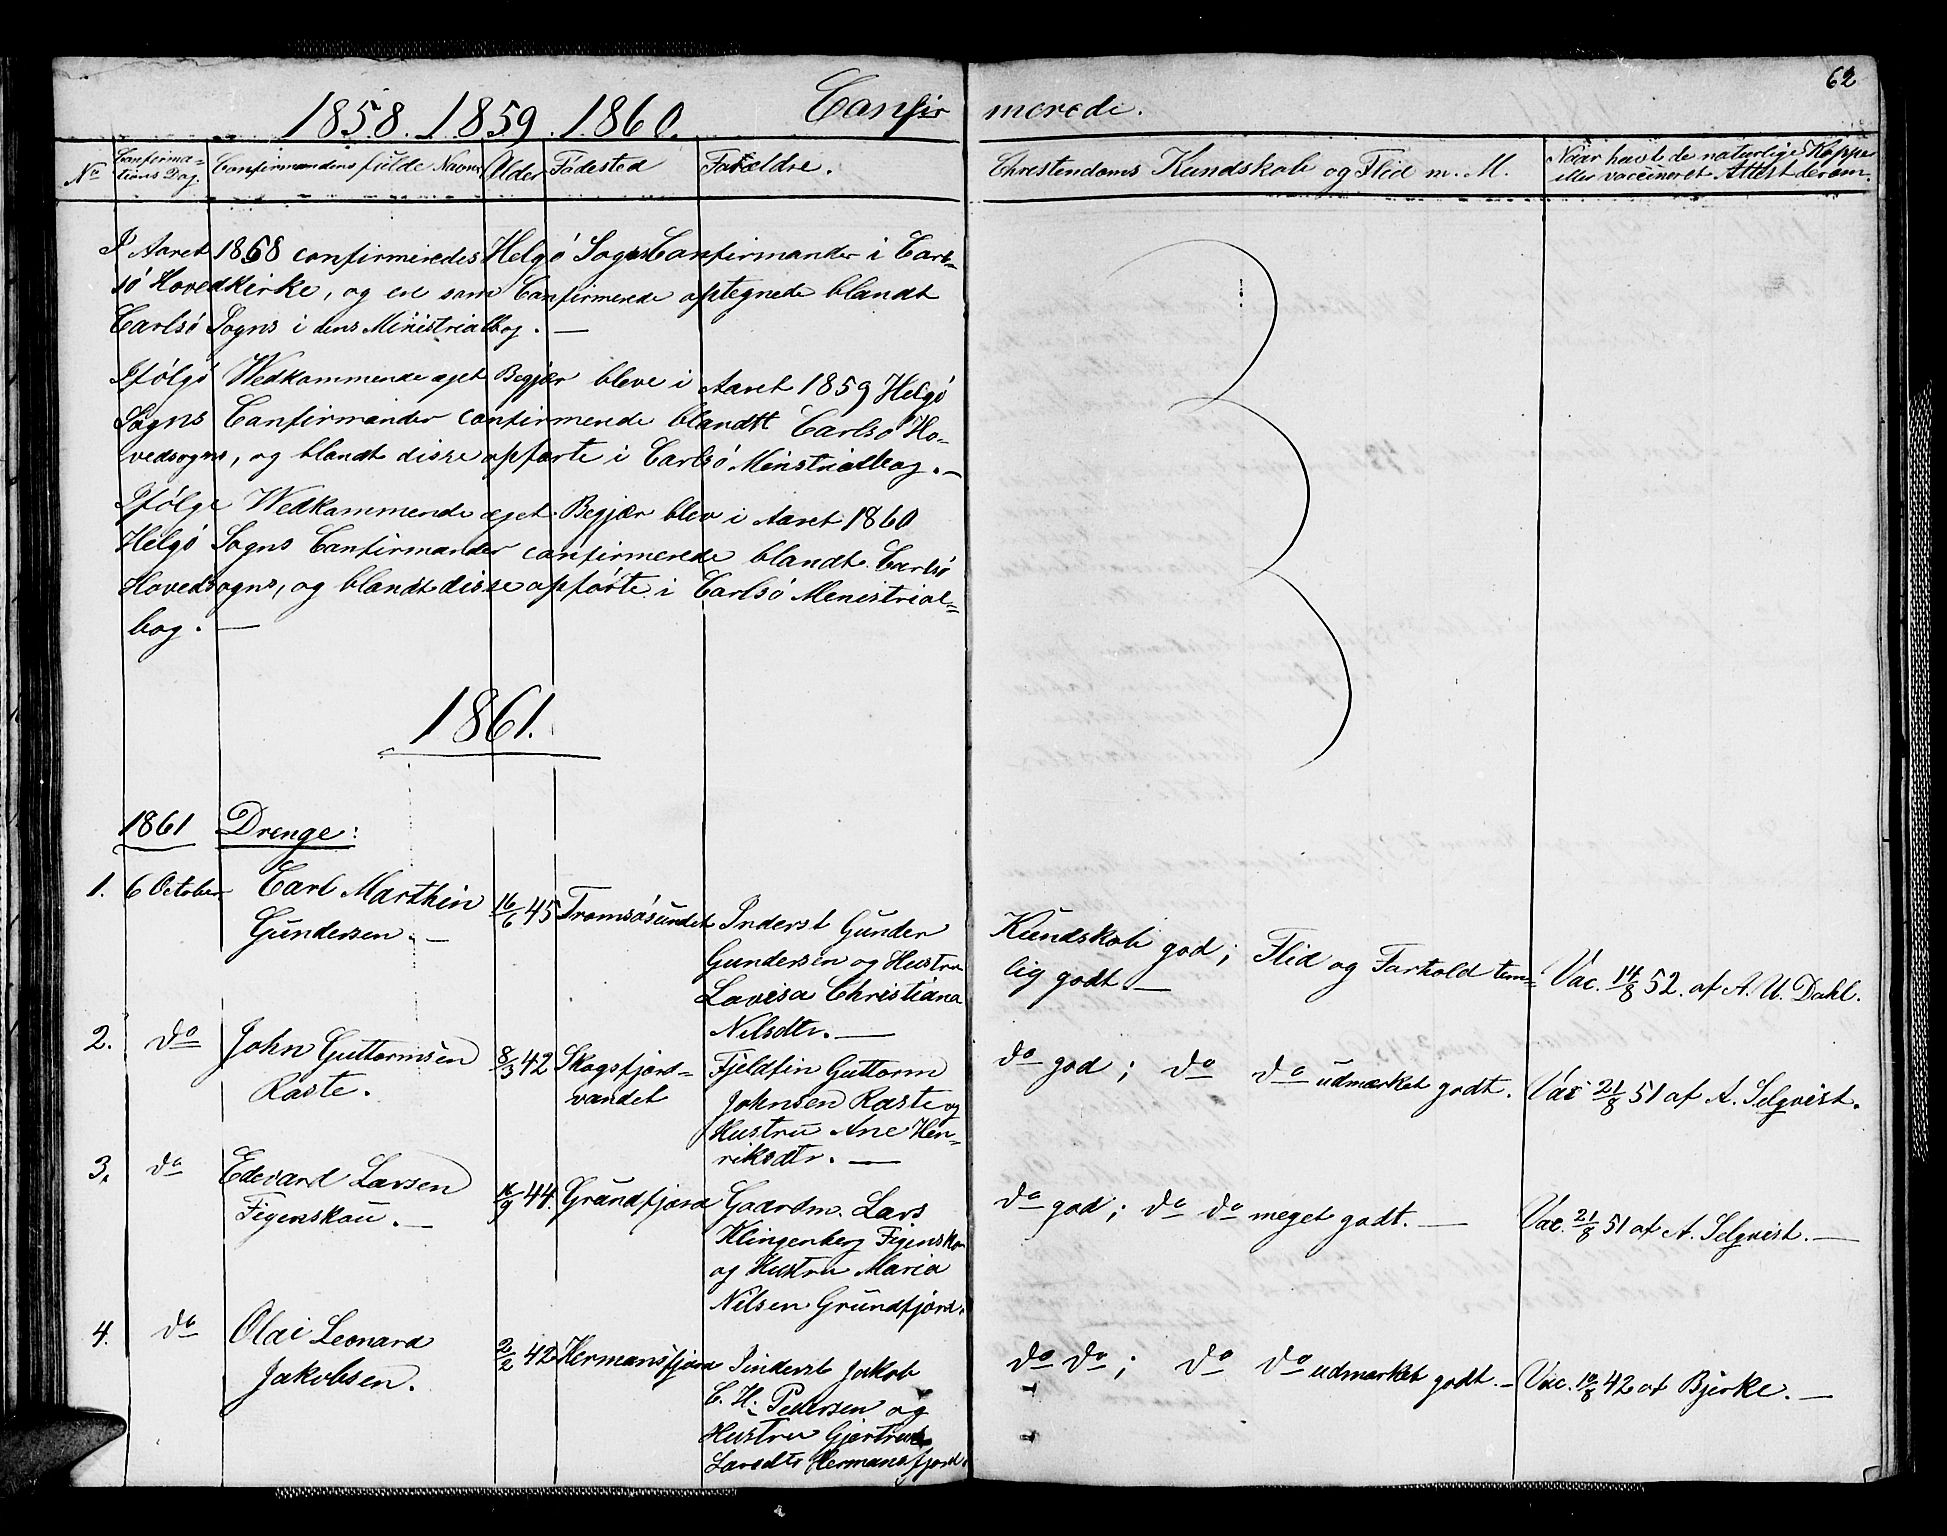 62
1858. 1859. 1860. Confirmerede.
No Confirmations Dag. Confirmandens fulde Navne Alder Fødested Forældre. Christendoms Kundskab og Flid m. M. Naar havt de naturlige Kopper eller vaccineret Attest derom.
I Aaret 1858 confirmeredes Helgø Sogns Confirmander i Carl-
sø Hovedkirke, og ere som Confirmerede optegnede blandt
Carlsø Sogns i dens Ministrialbog. —
Ifølge Wedkommende eget Begjær bleve i Aaret 1859 Helgø
Sogns Confirmander confirmerede blandt Carlsø Ho-
vedsogns, og blandt disse opførte i Carlsø Minstrialbog. —
Ifølge Wedkommende eget Begjær blev i Aaret 1860
Helgø Sogns Confirmander confirmerede blandt Carlsø
Hovedsogns, og blandt disse opførte i Carlsø Menistrial=
bog. —
1861.
1861 Drenge:
1. 6 October Carl Marthin
Gundersen. —
16/6 45 Tromsøsundet
Inderst Gunder
Gundersen og Hustru
Lavisa Christiana
Nilsdtr. —
Kundskab god; Flid og Forhold tem=
lig godt —
Vac. 14/8 52. af A. U. Dahl.
2. do John Guttormsen
Raste.
8/3 42 Skogsfjord=
vandet
Fjeldfin Guttorm
Johnsen Raste og
Hustru Ane Hen=
riksdtr. —
do god; do do udmærket godt.
Vac 21/8 51 af A. Selqvist.
3. do Edevard Larsen
Figenskou. —
44. Grundfjord
Gaardm. Lars
Klingenberg Figenskou
og Hustru Maria
Nilsen Grundfjord.
do god; do do meget godt. —
Vac. 21/8 51 af A. Selqvist. —
4. do Olai Leonard
Jakobsen.
2/2 42 Hermansfjord
Inderst Jakob
C. H. Pedersen og
Hustru Gjertrud
Larsdtr Hermansfjord.
do do; do do udmærket godt. —
Vac. 10/8 42 af Bjerke. —